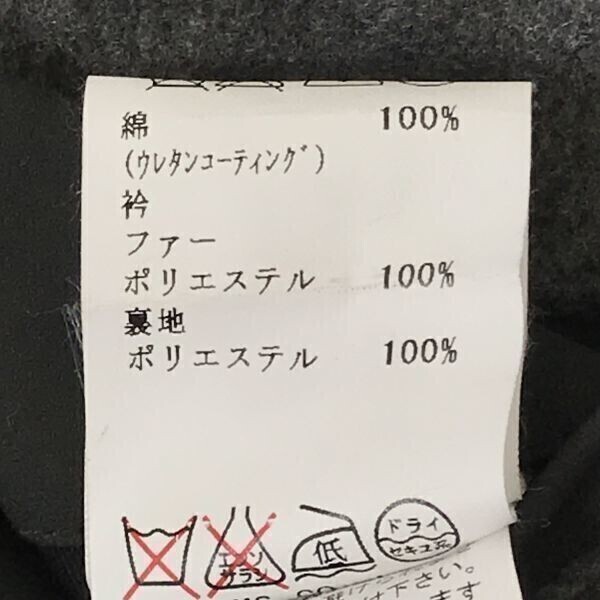 綿 100%
(ウレタンコーティング)
衿
ファー
ポリエステル 100%
裏地
ポリエステル 100%
エンソ
サラシ
低
ドライ
セキユ系
下さい。
ます